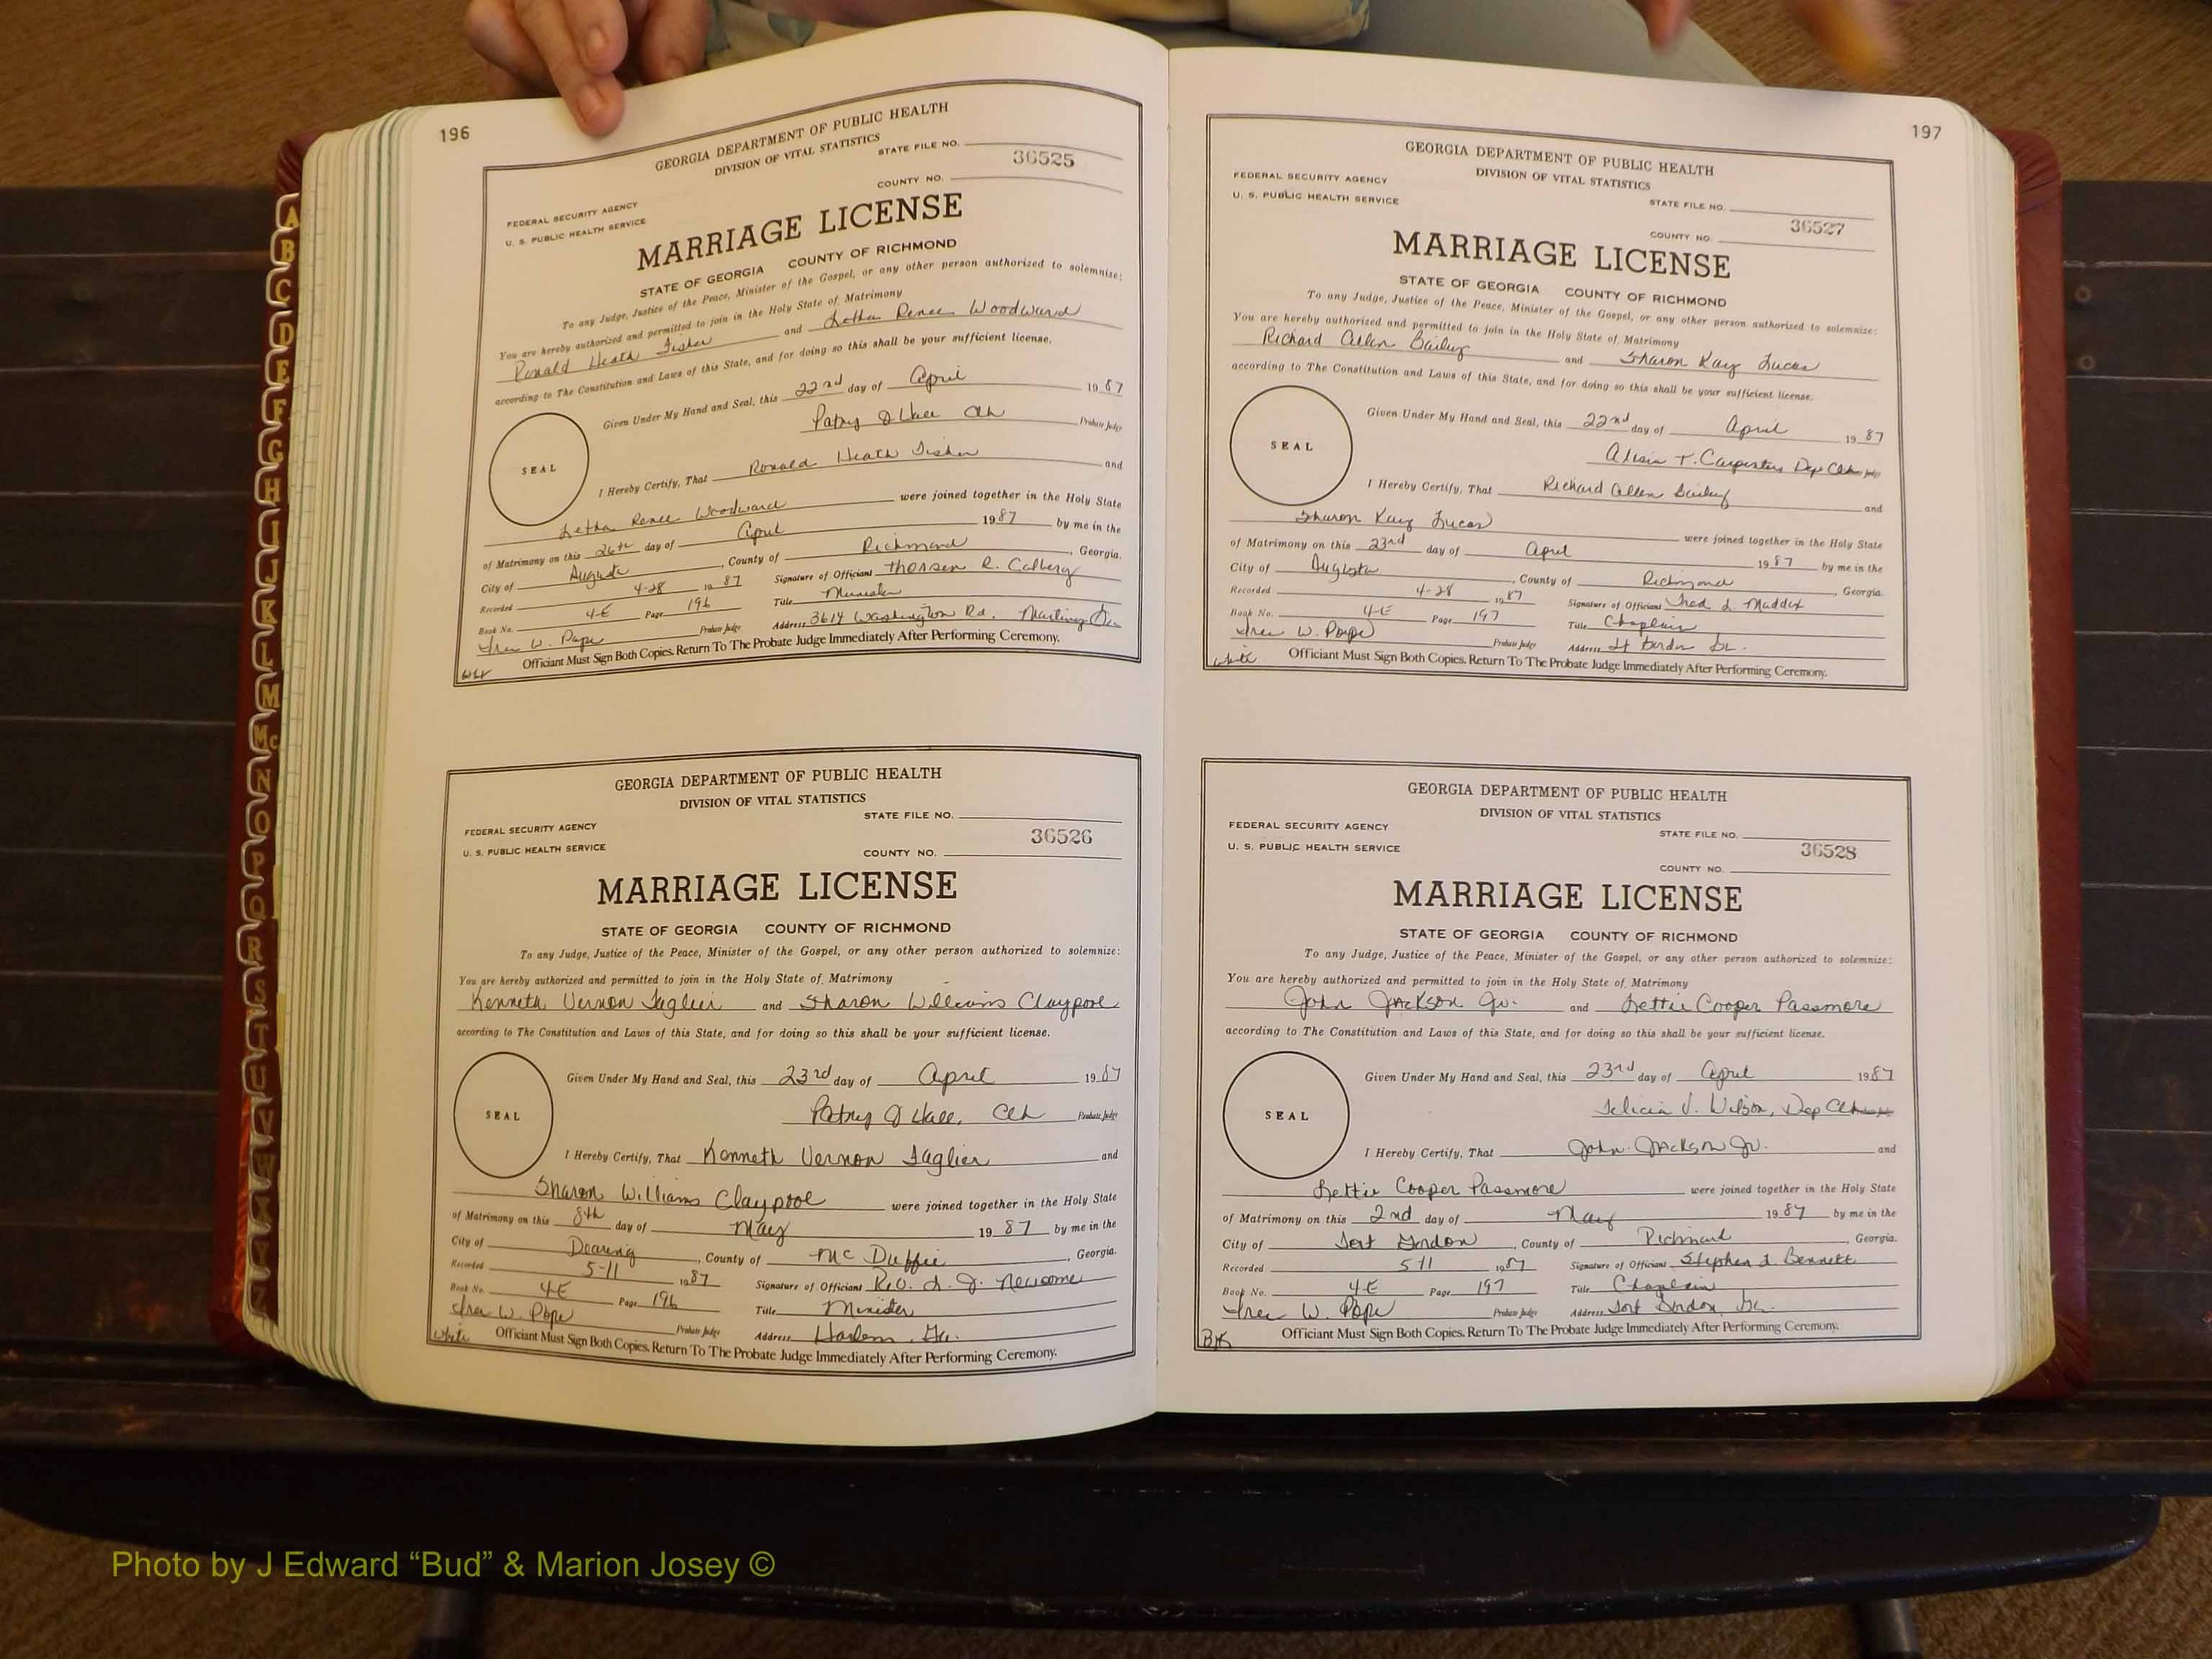 196
GEORGIA DEPARTMENT OF PUBLIC HEALTH
DIVISION OF VITAL STATISTICS
STATE FILE NO.
36525
COUNTY NO.
FEDERAL SECURITY AGENCY
U. S. PUBLIC HEALTH SERVICE
MARRIAGE LICENSE
STATE OF GEORGIA COUNTY OF RICHMOND
To any Judge, Justice of the Peace, Minister of the Gospel, or any other person authorized to solemnize:
You are hereby authorized and permitted to join in the Holy State of Matrimony
Ronald Heath Fisher and Letha Renee Woodward
according to The Constitution and Laws of this State, and for doing so this shall be your sufficient license.
Given Under My Hand and Seal, this 22nd day of April 1987
SEAL
Patsy J Hall Clk Probate Judge
I Hereby Certify, That Ronald Heath Fisher and
Letha Renee Woodward were joined together in the Holy State
of Matrimony on this 26th day of April 1987 by me in the
City of Augusta, County of Richmond, Georgia.
Recorded 4-28 1987 Signature of Official R. Calberg
Book No. 4-E Page 196 Title Minister
W. Pope Probate Judge Address 3614 Washington Rd. Martinez Ga
Officiant Must Sign Both Copies. Return To The Probate Judge Immediately After Performing Ceremony.
GEORGIA DEPARTMENT OF PUBLIC HEALTH
DIVISION OF VITAL STATISTICS
STATE FILE NO.
36526
COUNTY NO.
FEDERAL SECURITY AGENCY
U. S. PUBLIC HEALTH SERVICE
MARRIAGE LICENSE
STATE OF GEORGIA COUNTY OF RICHMOND
To any Judge, Justice of the Peace, Minister of the Gospel, or any other person authorized to solemnize:
You are hereby authorized and permitted to join in the Holy State of Matrimony
Kenneth Vernon Taglier and Sharon Williams Claypool
according to The Constitution and Laws of this State, and for doing so this shall be your sufficient license.
Given Under My Hand and Seal, this 23rd day of April 1987
SEAL
Patsy J Hall, Clk Probate Judge
I Hereby Certify, That Kenneth Vernon Taglier and
Sharon Williams Claypool were joined together in the Holy State
of Matrimony on this 8th day of May 1987 by me in the
City of Dearing, County of Mc Duffie, Georgia.
Recorded 5-11 1987 Signature of Official Rev. L. J. Newsome
Book No. 4E Page 196 Title Minister
W. Pope Probate Judge Address Harlem, Ga.
White
Officiant Must Sign Both Copies. Return To The Probate Judge Immediately After Performing Ceremony.
197
GEORGIA DEPARTMENT OF PUBLIC HEALTH
DIVISION OF VITAL STATISTICS
FEDERAL SECURITY AGENCY
U. S. PUBLIC HEALTH SERVICE
STATE FILE NO.
36527
COUNTY NO.
MARRIAGE LICENSE
STATE OF GEORGIA COUNTY OF RICHMOND
To any Judge, Justice of the Peace, Minister of the Gospel, or any other person authorized to solemnize:
You are hereby authorized and permitted to join in the Holy State of Matrimony
Richard Allen Bailey and Sharon Kay Lucas
according to The Constitution and Laws of this State, and for doing so this shall be your sufficient license.
Given Under My Hand and Seal, this 22nd day of April 1987
SEAL
T. Carpenter Dep Clk Judge
I Hereby Certify, That Richard Allen Bailey and
Sharon Kay Lucas were joined together in the Holy State
of Matrimony on this 23rd day of April 1987 by me in the
City of Augusta, County of Richmond, Georgia.
Recorded 4-28 1987 Signature of Official Fred L Maddox
Book No. 4-E Page 197 Title Chaplain
W. Pope Probate Judge Address Ft Gordon Ga.
White
Officiant Must Sign Both Copies. Return To The Probate Judge Immediately After Performing Ceremony.
GEORGIA DEPARTMENT OF PUBLIC HEALTH
DIVISION OF VITAL STATISTICS
FEDERAL SECURITY AGENCY
U. S. PUBLIC HEALTH SERVICE
STATE FILE NO.
36528
COUNTY NO.
MARRIAGE LICENSE
STATE OF GEORGIA COUNTY OF RICHMOND
To any Judge, Justice of the Peace, Minister of the Gospel, or any other person authorized to solemnize:
You are hereby authorized and permitted to join in the Holy State of Matrimony
John Jackson Jr. and Lettie Cooper Passmore
according to The Constitution and Laws of this State, and for doing so this shall be your sufficient license.
Given Under My Hand and Seal, this 23rd day of April 1987
SEAL
Felicia V. Wilson, Dep Clk Judge
I Hereby Certify, That John Jackson Jr. and
Lettie Cooper Passmore were joined together in the Holy State
of Matrimony on this 2nd day of May 1987 by me in the
City of Fort Gordon, County of Richmond, Georgia.
Recorded 5-11 1987 Signature of Official Stephen L Bennett
Book No. 4-E Page 197 Title Chaplain
W. Pope Probate Judge Address Fort Gordon, Ga.
Blk
Officiant Must Sign Both Copies. Return To The Probate Judge Immediately After Performing Ceremony.
A
B
C
D
E
F
G
H
I
J
K
L
M
Mc
N
O
P
Q
R
S
T
U
V
W
X
Y
Z
Photo by J Edward “Bud” & Marion Josey ©